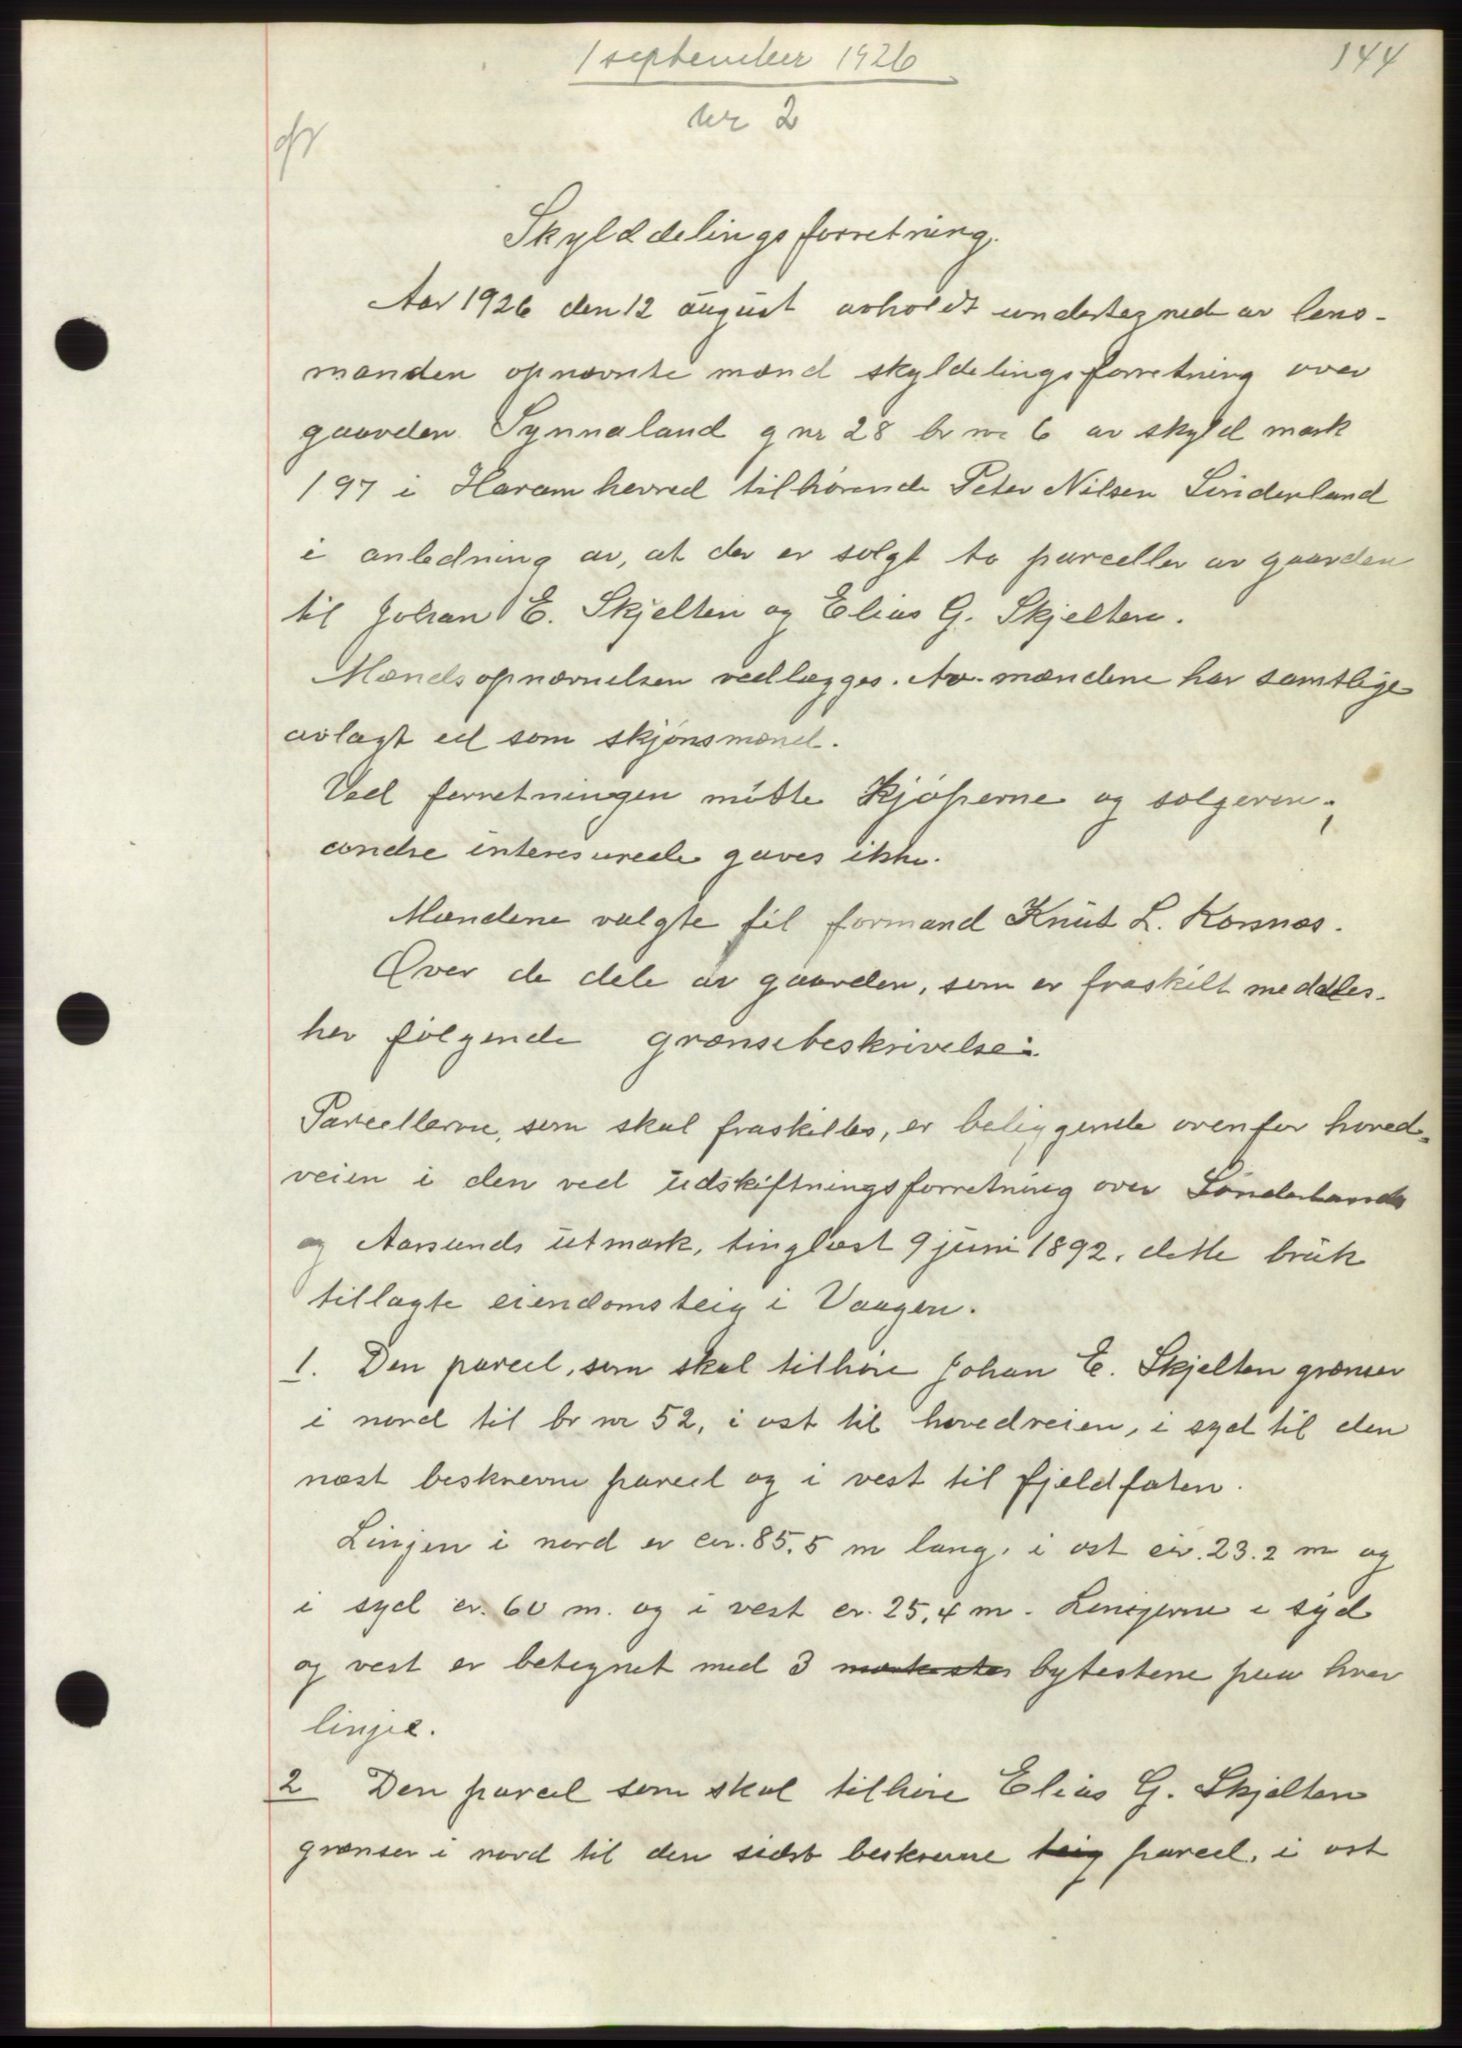 1 september 1926
144
nr 2
Skylddelingsforretning.
Aar 1926 den 12 august avholdt undertegnede av lens-
manden opnævnte mænd skyldelingsforretning over
gaarden Synnaland g nr 28 br nr 6 av skyld mark
1 97 i Haram herred tilhørende Peter Nilsen Sünderland
i anledning av, at der er solgt to parceller av gaarden
til Johan E. Skjelten og Elias G. Skjelten.
Mændsopnævnelsen vedlægges. Av mændene har samtlige
avlagt ed som skjønsmænd.
Ved forretningen møtte Kjøperne og sælgeren;
andre interesserede gaves ikke.
Mændene valgte til formand Knut L. Korsnes.
Over de dele av gaarden, som er fraskilt meddeles
her følgende grænsebeskrivelse:
Parcellerne, som skal fraskilles, er beliggende ovenfor hoved-
veien i den ved udskiftningsforretning over Sønderlands
og Aarsunds utmark, tinglæst 9 juni 1892, dette bruk
tillagte eiendomsteig i Vaagen.
1. Den parcel, som skal tilhøre Johan E. Skjelten grænser
i nord til br nr 52, i øst til hovedveien, i syd til den
næst beskrevne parcel og i vest til fjeldfoten.
Linjen i nord er cir. 85,5 m lang, i øst cir. 23.2 m og
i syd cr. 60 m. og i vest cr. 25,4 m. Linjerne i syd
og vest er betegnet med 3 bytestene paa hver
linje.
2 Den parcel som skal tilhøre Elias G. Skjelten
grænser i nord til den sidst beskrevne teig parcel, i øst